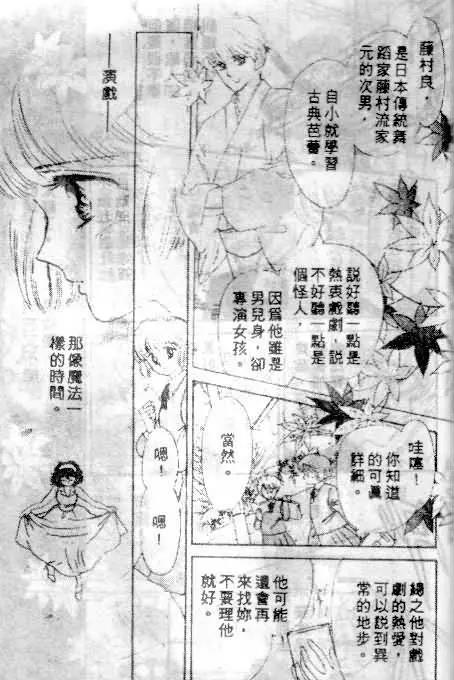 藤村良，
是日本傳統舞
蹈家藤村流家
元的次男，
自小就學習
古典芭蕾。
說好聽一點是
熱衷戲劇，說
不好聽一點是
個怪人，
因為他雖是
男兒身，卻
專演女孩。
哇噻！
你知道
的可真
詳細。
當然。
嗯！
嗯！
總之他對戲
劇的熱愛，
可以說到異
常的地步。
他可能
還會再
來找妳，
不要理他
就好。
──演戲──
那像魔法一
樣的時間。